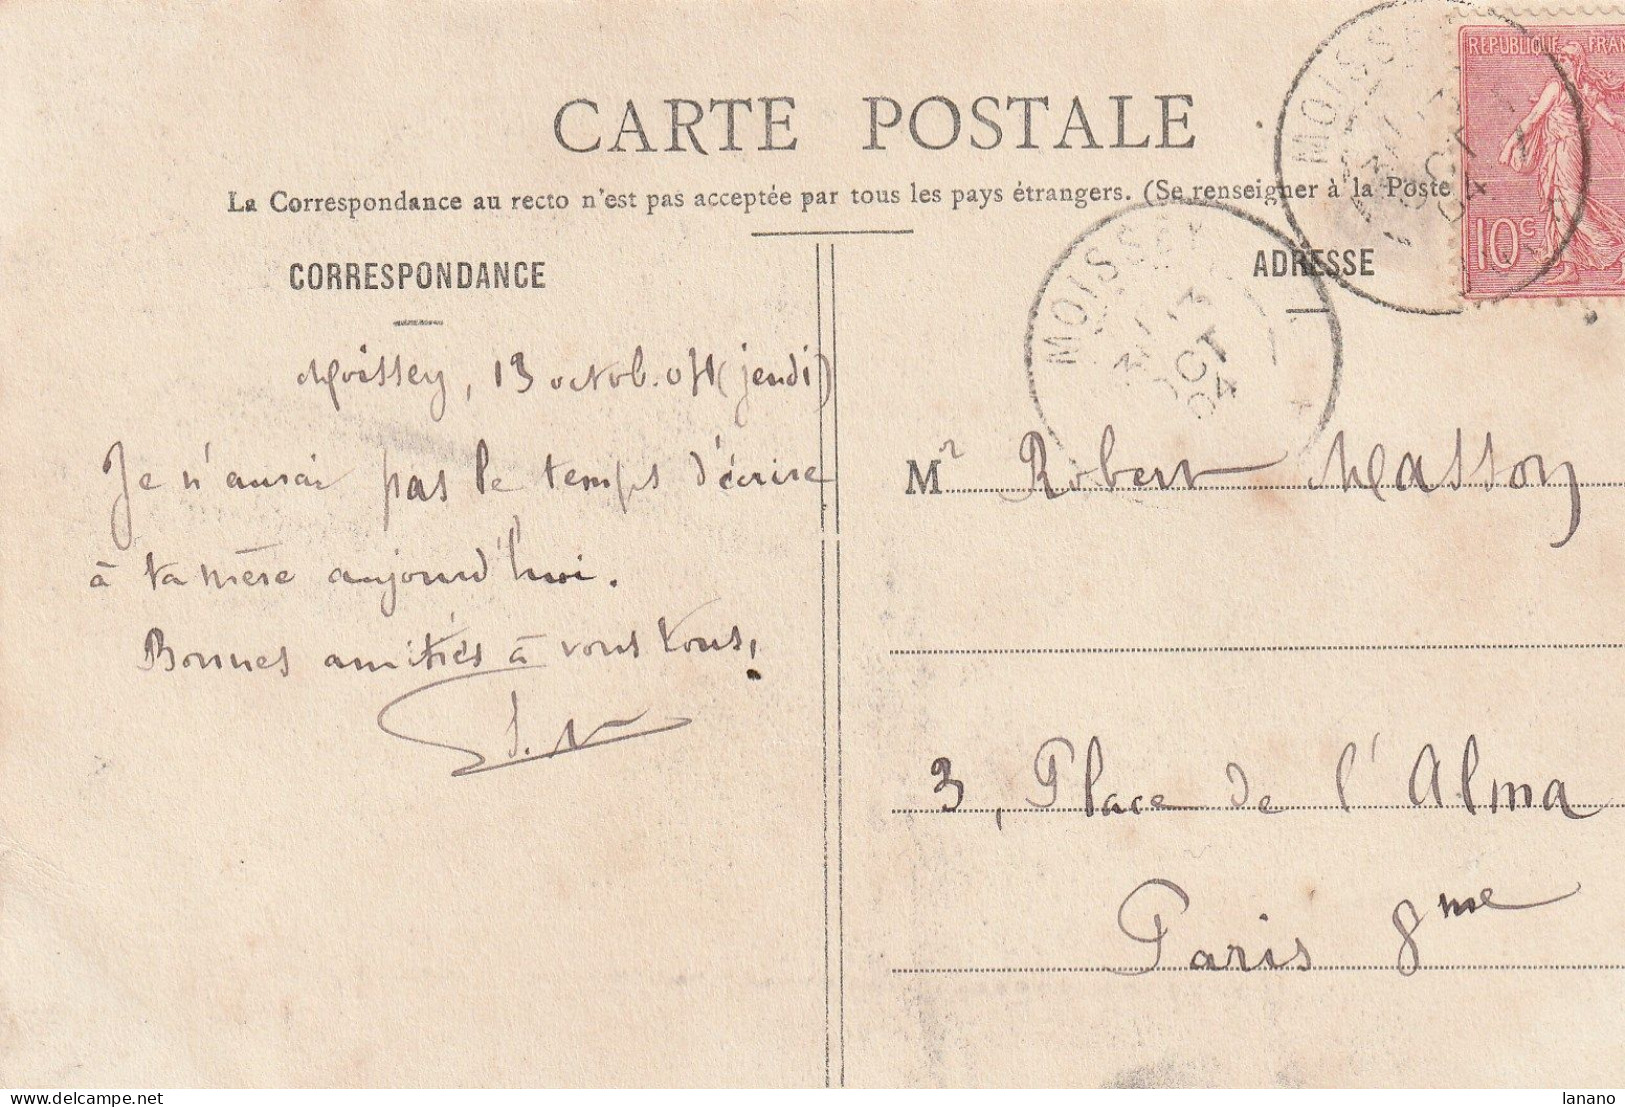 CARTE POSTALE
La Correspondance au recto n'est pas acceptée par tous les pays étrangers. (Se renseigner à la Poste
CORRESPONDANCE
Moissey, 13 octob. 04 (jeudi)
Je n'aurai pas le temps d'écrire
à ta mère aujourd'hui.
Bonnes amitiés à vous tous,
ADRESSE
Mr Robert Masson
3, Place de l'Alma
Paris 8me
REPUBLIQUE FRAN
10c
MOISSEY
13
OCT
04
MOISSEY
13
OCT
04
delcampe.net
lanano